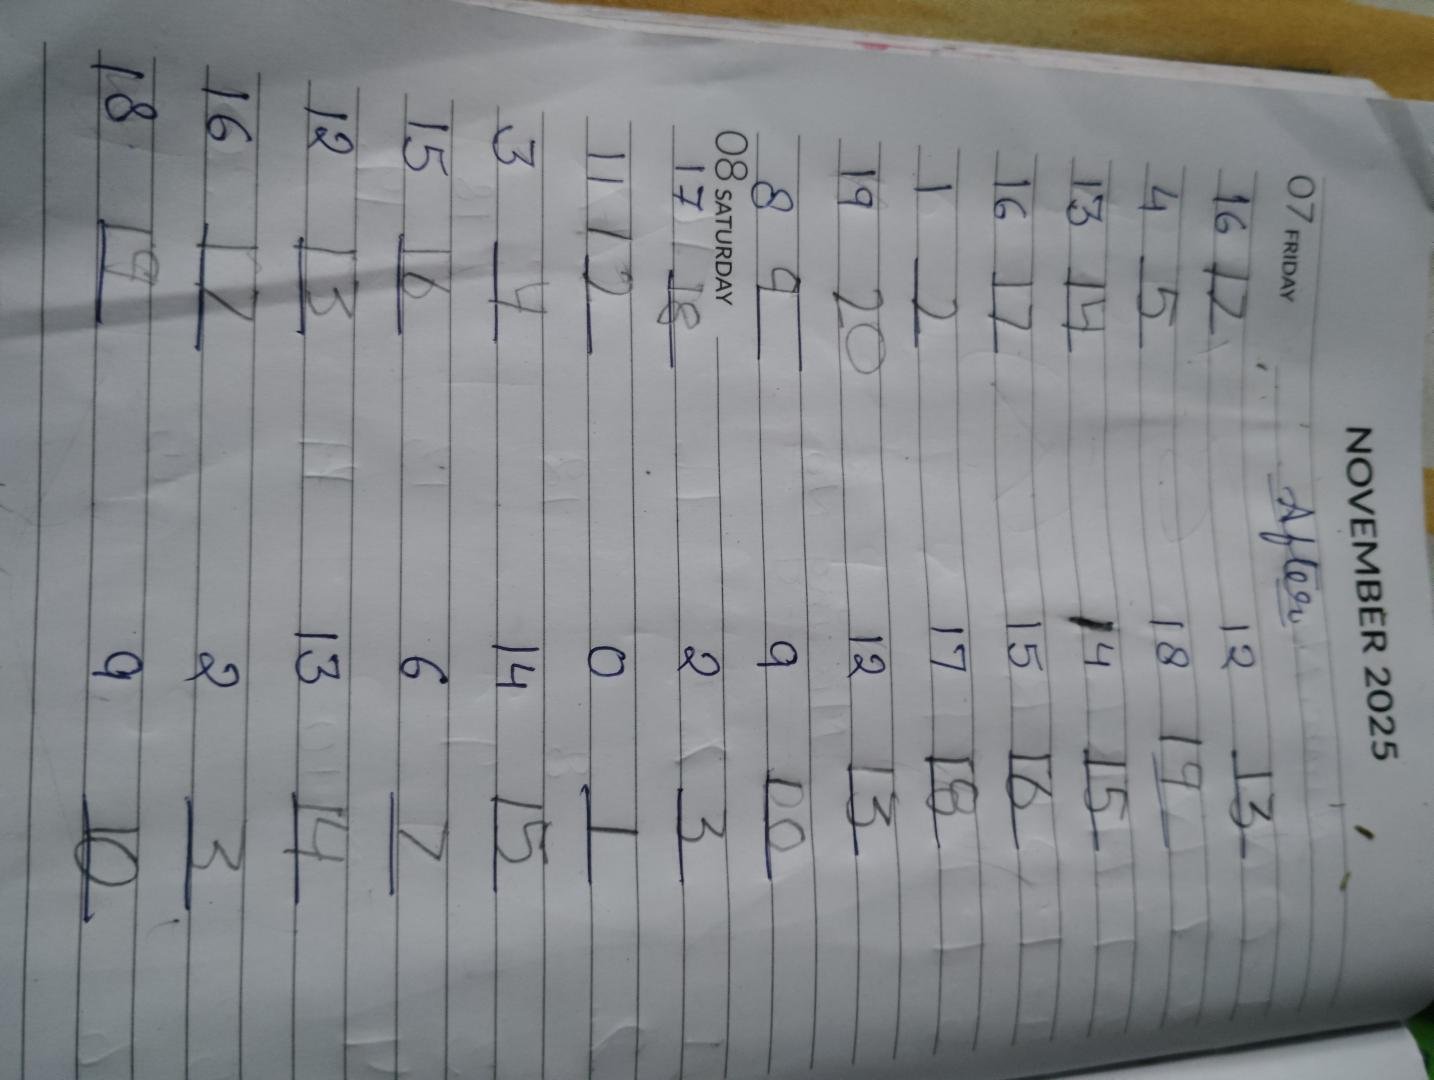 NOVEMBER 2025
After
07 FRIDAY
16 17 12 13
4 5 18 19
13 14 14 15
16 17 15 16
1 2 17 18
19 20 12 13
8 9 9 10
08 SATURDAY
17 18 2 3
11 12 0 1
3 4 14 15
15 16 6 7
12 13 13 14
16 17 2 3
18 19 9 10